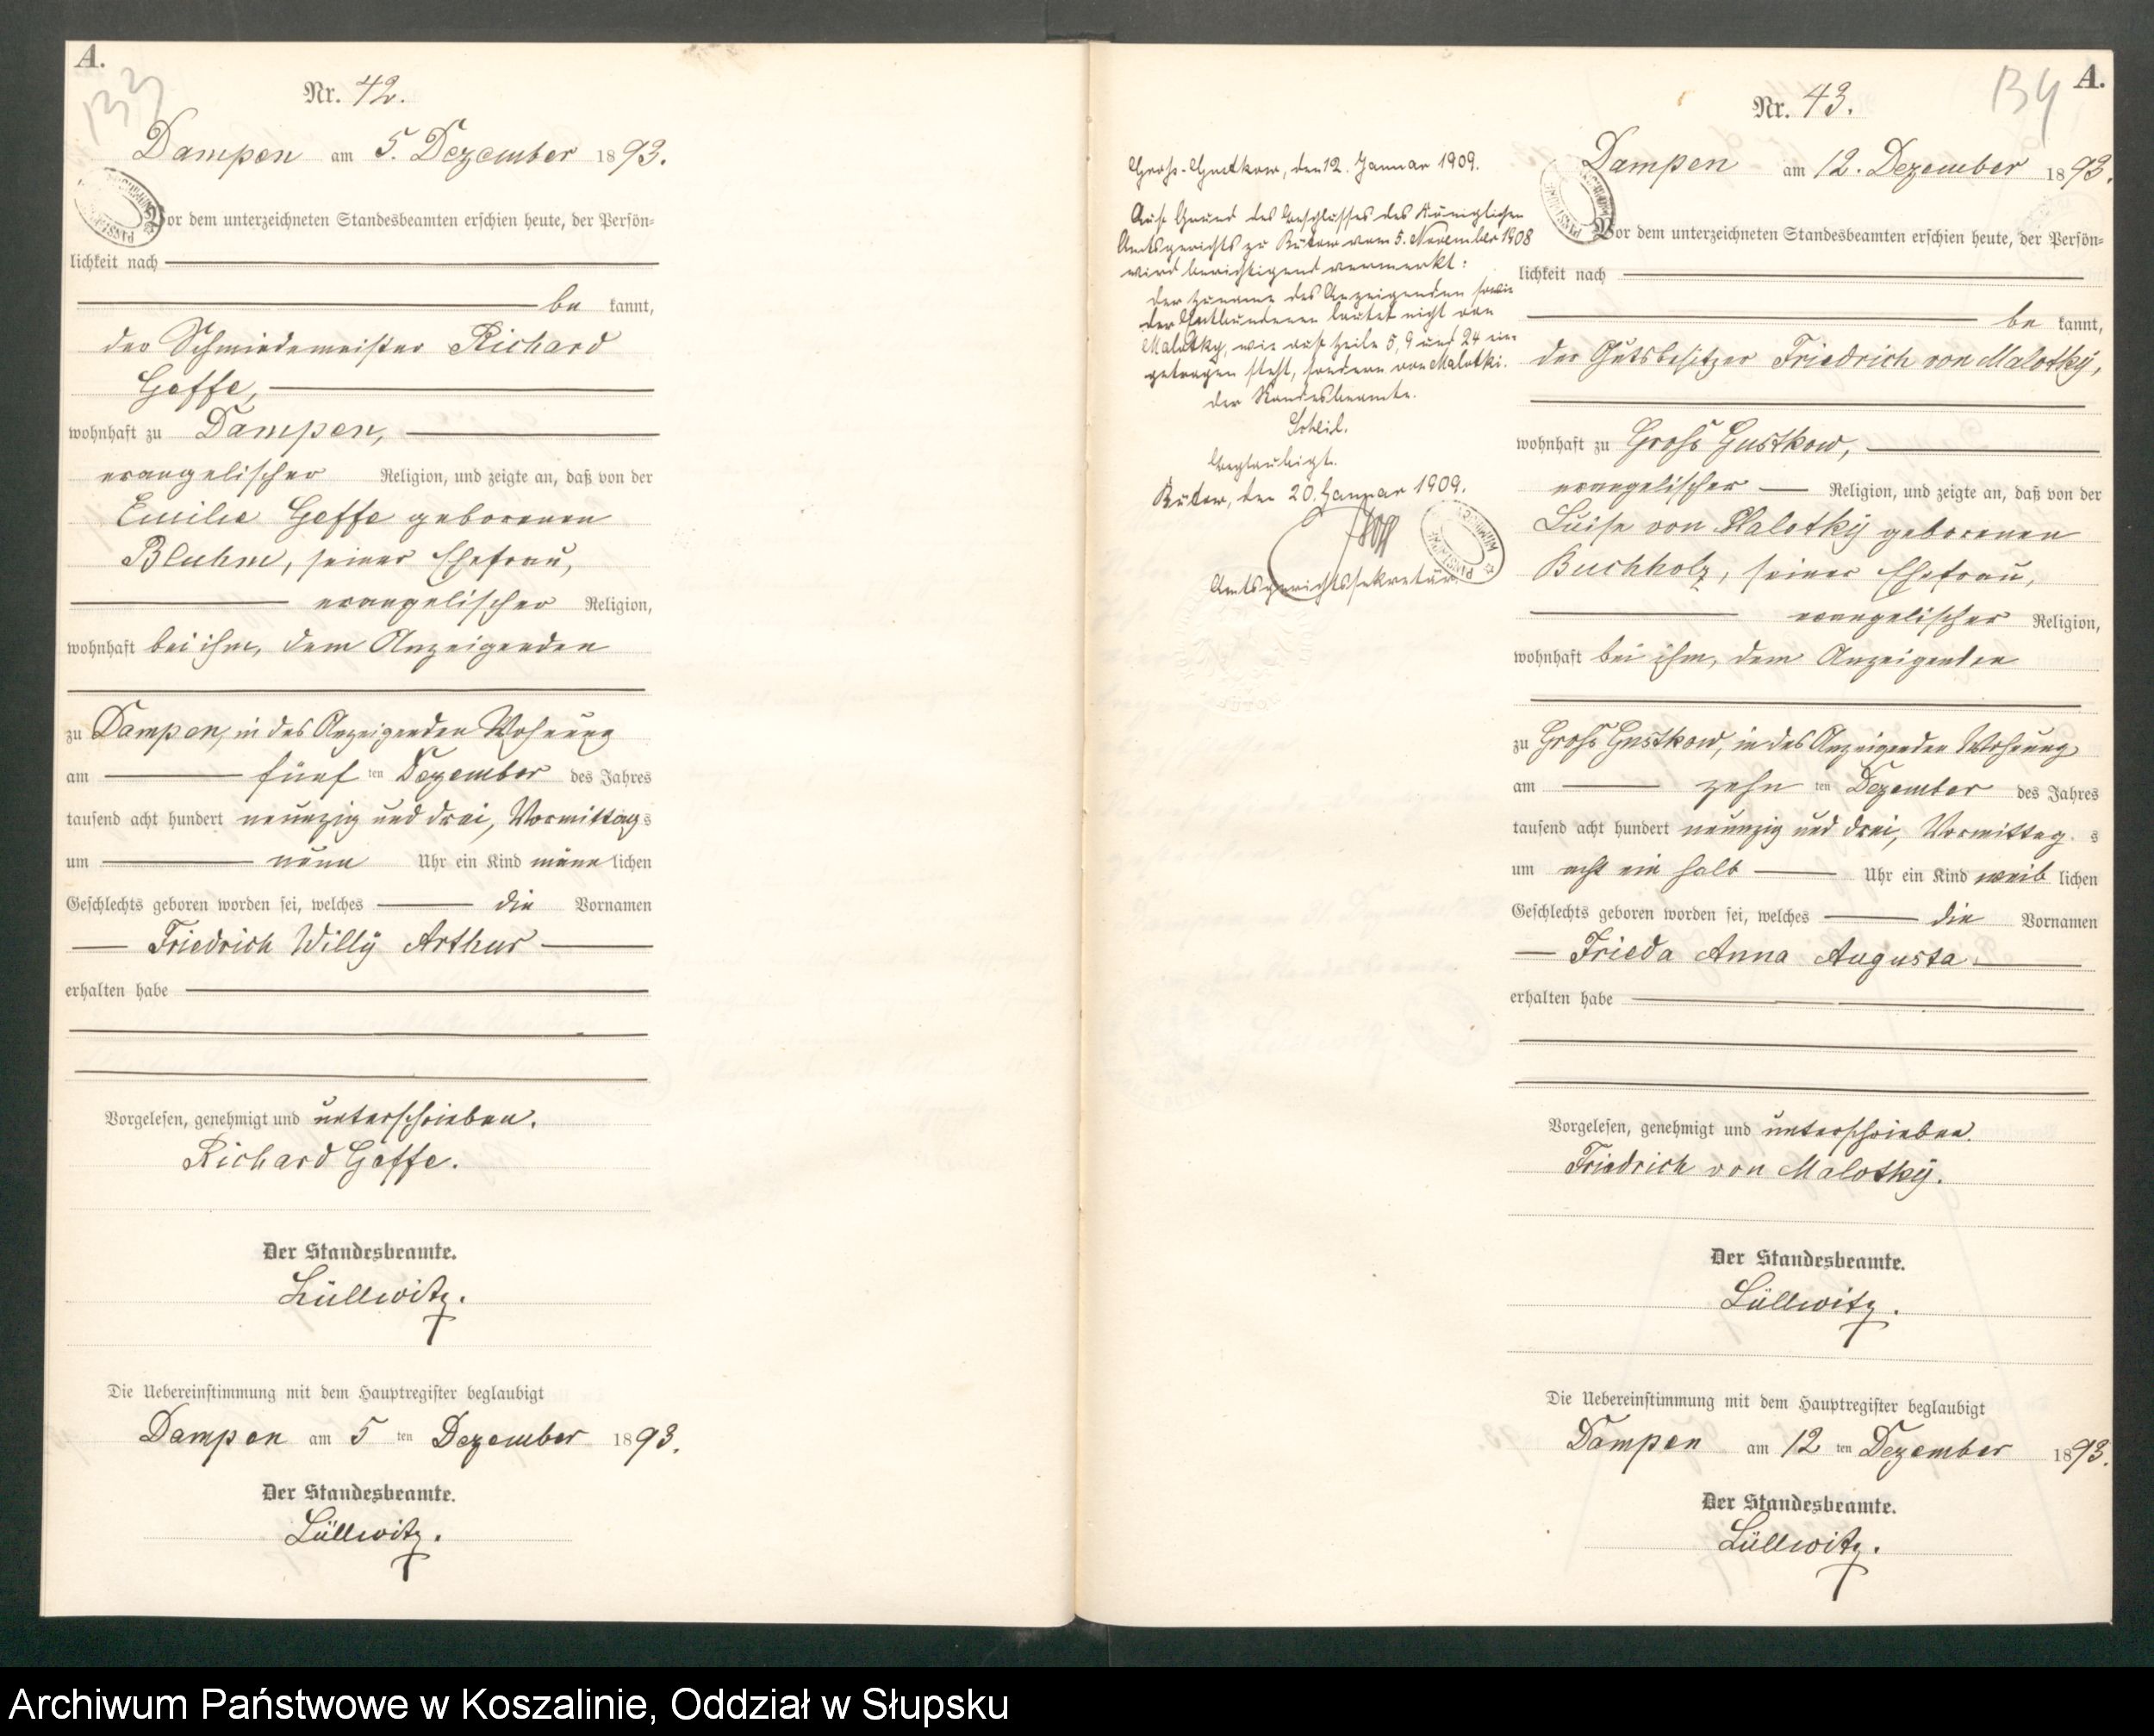 A.
133
Nr. 42.
Dampen am 5. Dezember 1893.
Vor dem unterzeichneten Standesbeamten erschien heute, der Persön=
lichkeit nach
be kannt,
der Schmiedemeister Richard
Geffe,
wohnhaft zu Dampen,
evangelischer Religion, und zeigte an, daß von der
Emilie Geffe geborenen
Bluhm, seiner Ehefrau,
evangelischer Religion,
wohnhaft bei ihm, dem Anzeigenden
zu Dampen, in des Anzeigenden Wohnung
am fünf ten Dezember des Jahres
tausend acht hundert neunzig und drei, Vormittag s
um neun Uhr ein Kind männ lichen
Geschlechts geboren worden sei, welches die Vornamen
Friedrich Willÿ Arthur
erhalten habe
Vorgelesen, genehmigt und unterschrieben.
Richard Geffe.
Der Standesbeamte.
Lüllwitz.
Die Uebereinstimmung mit dem Hauptregister beglaubigt
Dampen am 5 ten Dezember 1893.
Der Standesbeamte.
Lüllwitz.
Gross-Gustkow, den 12. Januar 1909.
Auf Grund des Beschlusses des Königlichen
Amtsgerichts zu Bütow vom 5. November 1908
wird berichtigend vermerkt:
der Zuname des Anzeigenden sowie
der Entbundenen lautet nicht von
Malotky, wie auf Zeile 5, 9 und 24 ein=
getragen steht, sondern von Malotki.
Der Standesbeamte.
Beglaubigt.
Bütow, den 20. Januar 1909.
Amtsgerichtssekretär
A.
134
Nr. 43.
Dampen am 12. Dezember 1893.
Vor dem unterzeichneten Standesbeamten erschien heute, der Persön=
lichkeit nach
be kannt,
der Gutsbesitzer Friedrich von Malotkÿ,
wohnhaft zu Gross Gustkow,
evangelischer Religion, und zeigte an, daß von der
Luise von Malotkÿ geborenen
Buchholz, seiner Ehefrau,
evangelischer Religion,
wohnhaft bei ihm, dem Anzeigenden
zu Gross Gustkow, in des Anzeigenden Wohnung
am zehn ten Dezember des Jahres
tausend acht hundert neunzig und drei, Vormittag s
um acht ein halb Uhr ein Kind weib lichen
Geschlechts geboren worden sei, welches die Vornamen
Frieda Anna Augusta
erhalten habe
Vorgelesen, genehmigt und unterschrieben.
Friedrich von Malotkÿ.
Der Standesbeamte.
Lüllwitz.
Die Uebereinstimmung mit dem Hauptregister beglaubigt
Dampen am 12 ten Dezember 1893.
Der Standesbeamte.
Lüllwitz.
Archiwum Państwowe w Koszalinie, Oddział w Słupsku